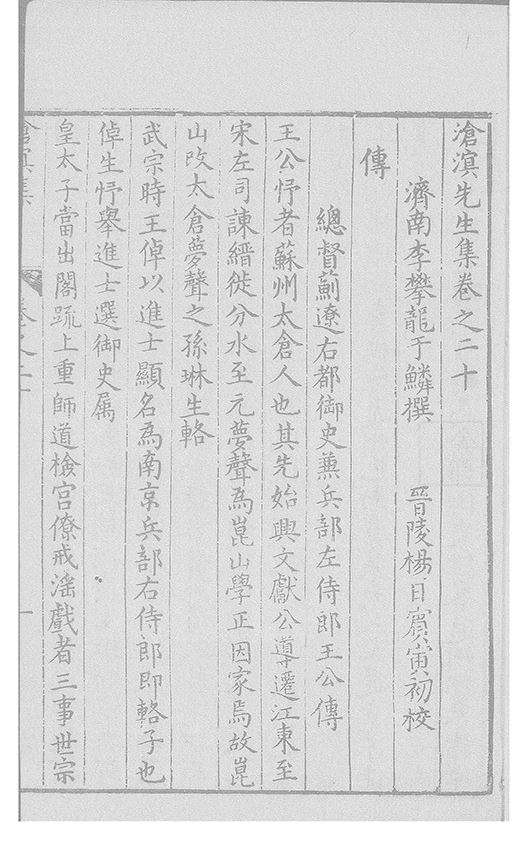 滄溟先生集卷之二十
濟南李攀龍于鱗撰　晉陵楊日賔寅初校
傳
總督薊遼右都御史蕪兵部左侍郎王公傳
王公忬者蘇州太倉人也其先始興文獻公導遷江東至
宋左司諫縉徙分水至元夢聲為崑山學正因家焉故崑
山改太倉夢聲之孫琳生輅
武宗時王倬以進士顯名為南京兵部右侍郎即輅子也
倬生忬舉進士選御史属
皇太子當出閣疏上重師道檢宫僚戒滛戲者三事世宗
滄溟集　卷之二十　一